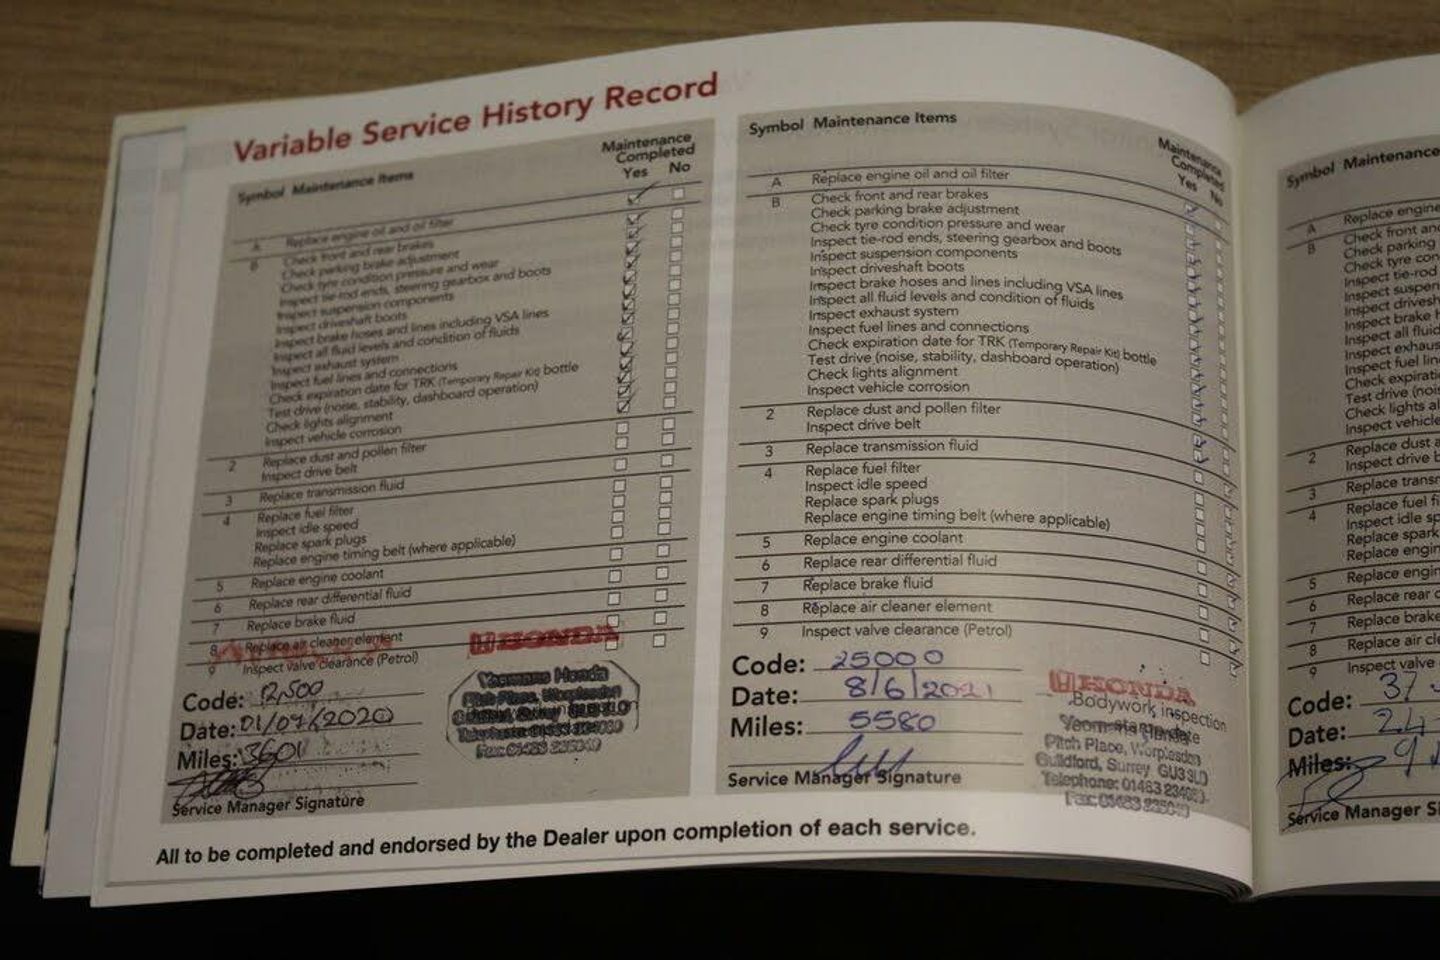 Variable Service History Record
Symbol Maintenance Items
Maintenance Completed
Yes No
A Replace engine oil and oil filter
B Check front and rear brakes
Check parking brake adjustment
Check tyre condition pressure and wear
Inspect tie-rod ends, steering gearbox and boots
Inspect suspension components
Inspect driveshaft boots
Inspect brake hoses and lines including VSA lines
Inspect all fluid levels and condition of fluids
Inspect exhaust system
Inspect fuel lines and connections
Check expiration date for TRK (Temporary Repair Kit) bottle
Test drive (noise, stability, dashboard operation)
Check lights alignment
Inspect vehicle corrosion
2 Replace dust and pollen filter
Inspect drive belt
3 Replace transmission fluid
4 Replace fuel filter
Inspect idle speed
Replace spark plugs
Replace engine timing belt (where applicable)
5 Replace engine coolant
6 Replace rear differential fluid
7 Replace brake fluid
8 Replace air cleaner element
9 Inspect valve clearance (Petrol)
HONDA
Yeomans Honda
Pitch Place, Worplesdon
Guildford, Surrey GU3 3LD
Code: 12,500
Date: 01/07/2020
Miles: 3601
Service Manager Signature
Symbol Maintenance Items
Maintenance Completed
Yes No
A Replace engine oil and oil filter
B Check front and rear brakes
Check parking brake adjustment
Check tyre condition pressure and wear
Inspect tie-rod ends, steering gearbox and boots
Inspect suspension components
Inspect driveshaft boots
Inspect brake hoses and lines including VSA lines
Inspect all fluid levels and condition of fluids
Inspect exhaust system
Inspect fuel lines and connections
Check expiration date for TRK (Temporary Repair Kit) bottle
Test drive (noise, stability, dashboard operation)
Check lights alignment
Inspect vehicle corrosion
2 Replace dust and pollen filter
Inspect drive belt
3 Replace transmission fluid
4 Replace fuel filter
Inspect idle speed
Replace spark plugs
Replace engine timing belt (where applicable)
5 Replace engine coolant
6 Replace rear differential fluid
7 Replace brake fluid
8 Replace air cleaner element
9 Inspect valve clearance (Petrol)
Code: 25000
Date: 8/6/2021
Miles: 5580
Service Manager Signature
HONDA
Bodywork inspection
Pitch Place, Worplesdon
Guildford, Surrey GU3 3LD
Telephone: 01483
All to be completed and endorsed by the Dealer upon completion of each service.
Symbol Maintenance
A Replace engine
B Check front
Check parking
Check tyre
Inspect tie-rod
Inspect
Inspect
Inspect brake
Inspect all fluid
Inspect
Inspect fuel
Check
Test drive
Check lights
Inspect vehicle
2 Replace dust
Inspect drive
3 Replace
4 Replace fuel
Inspect idle
Replace spark
Replace
5 Replace
6 Replace rear
7 Replace brake
8 Replace air
9 Inspect valve
Code: 37
Date: 24
Miles: 9
Service Manager